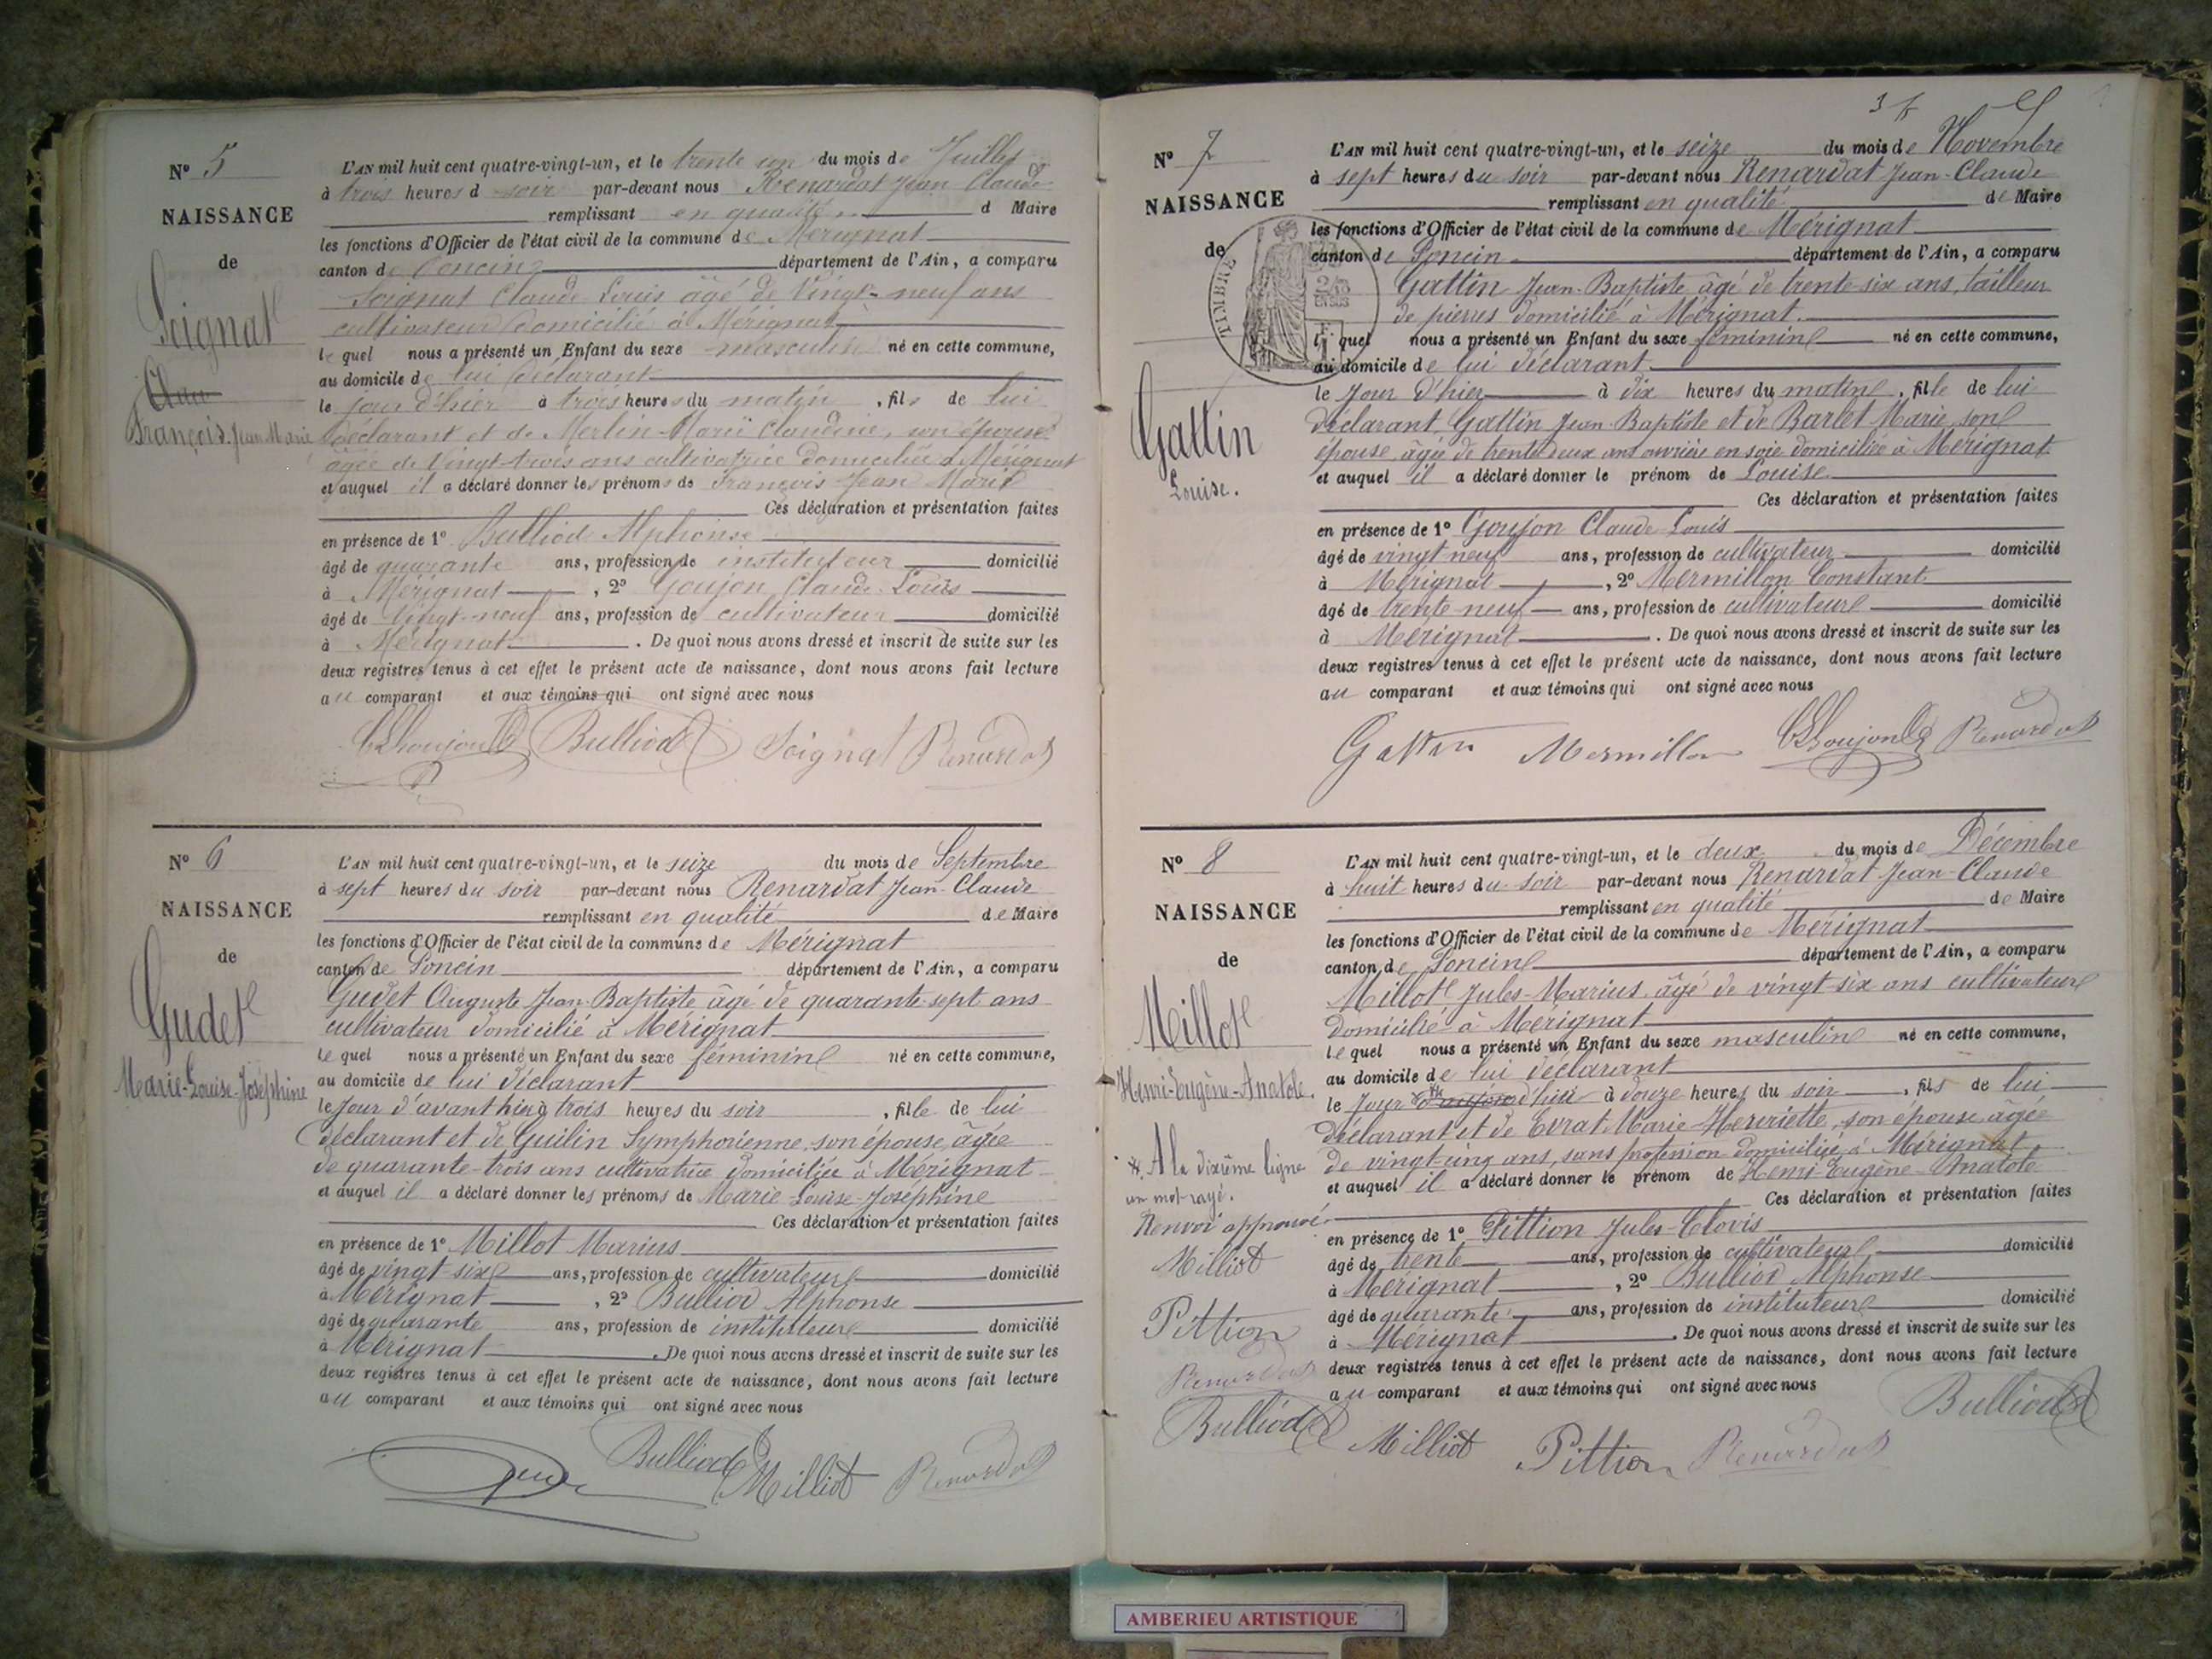 N° 5
NAISSANCE
de
Soignat
Clau
François-Jean-Marie
L'AN mil huit cent quatre-vingt-un, et le trente un du mois de Juillet
à trois heures d soir par-devant nous Renardat Jean Claude
remplissant en qualité d Maire
les fonctions d'Officier de l'état civil de la commune de Mérignat
canton de Poncin département de l'Ain, a comparu
Soignat Claude Louis âgé de vingt-neuf ans
cultivateur domicilié à Mérignat
le quel nous a présenté un Enfant du sexe masculin né en cette commune,
au domicile de lui déclarant
le jour d'hier à trois heures du matin, fils de lui
déclarant et de Merlin Marie Claudine, son épouse
âgée de vingt-trois ans cultivatrice domiciliée à Mérignat
et auquel il a déclaré donner les prénoms de François Jean Marie
Ces déclaration et présentation faites
en présence de 1° Bulliod Alphonse
âgé de quarante ans, profession de instituteur domicilié
à Mérignat, 2° Goujon Claude Louis
âgé de vingt-neuf ans, profession de cultivateur domicilié
à Mérignat. De quoi nous avons dressé et inscrit de suite sur les
deux registres tenus à cet effet le présent acte de naissance, dont nous avons fait lecture
au comparant et aux témoins qui ont signé avec nous
CLGoujon Bulliod Soignat Renardat
N° 6
NAISSANCE
de
Gudet
Marie-Louise-Joséphine
L'AN mil huit cent quatre-vingt-un, et le seize du mois de Septembre
à sept heures du soir par-devant nous Renardat Jean-Claude
remplissant en qualité de Maire
les fonctions d'Officier de l'état civil de la commune de Mérignat
canton de Poncin département de l'Ain, a comparu
Gudet Auguste Jean-Baptiste âgé de quarante sept ans
cultivateur domicilié à Mérignat
le quel nous a présenté un Enfant du sexe féminin né en cette commune,
au domicile de lui déclarant
le jour d'avant hier à trois heures du soir, fille de lui
déclarant et de Guilin Symphorienne, son épouse, âgée
de quarante-trois ans cultivatrice domiciliée à Mérignat
et auquel il a déclaré donner les prénoms de Marie-Louise-Joséphine
Ces déclaration et présentation faites
en présence de 1° Millot Marius
âgé de vingt-six ans, profession de cultivateur domicilié
à Mérignat, 2° Bulliod Alphonse
âgé de quarante ans, profession de instituteur domicilié
à Mérignat. De quoi nous avons dressé et inscrit de suite sur les
deux registres tenus à cet effet le présent acte de naissance, dont nous avons fait lecture
au comparant et aux témoins qui ont signé avec nous
Bulliod Milliot Renardat
N° 7
NAISSANCE
de
TIMBRE
Gattin
Louise.
L'AN mil huit cent quatre-vingt-un, et le seize du mois de Novembre
à sept heures du soir par-devant nous Renardat Jean-Claude
remplissant en qualité de Maire
les fonctions d'Officier de l'état civil de la commune de Mérignat
canton de Poncin département de l'Ain, a comparu
Gattin Jean-Baptiste âgé de trente-six ans, tailleur
de pierres domicilié à Mérignat.
le quel nous a présenté un Enfant du sexe féminin né en cette commune,
au domicile de lui déclarant.
le jour d'hier à dix heures du matin, fille de lui
déclarant Gattin Jean-Baptiste et de Barlet Marie, son
épouse, âgée de trente-deux ans ouvrière en soie domiciliée à Mérignat
et auquel il a déclaré donner le prénom de Louise.
Ces déclaration et présentation faites
en présence de 1° Goujon Claude-Louis
âgé de vingt-neuf ans, profession de cultivateur domicilié
à Mérignat, 2° Mermillon Constant
âgé de trente-neuf ans, profession de cultivateur domicilié
à Mérignat. De quoi nous avons dressé et inscrit de suite sur les
deux registres tenus à cet effet le présent acte de naissance, dont nous avons fait lecture
au comparant et aux témoins qui ont signé avec nous
Gattin Mermillon CLGoujon Renardat
N° 8
NAISSANCE
de
Millot
Henri-Eugène-Anatole.
* A la dixième ligne
un mot rayé.
Renvoi approuvé
Milliot
Pittion
Renardat
Bulliod
L'AN mil huit cent quatre-vingt-un, et le deux du mois de Décembre
à huit heures du soir par-devant nous Renardat Jean-Claude
remplissant en qualité de Maire
les fonctions d'Officier de l'état civil de la commune de Mérignat
canton de Poncin département de l'Ain, a comparu
Millot Jules-Marius, âgé de vingt-six ans cultivateur
domicilié à Mérignat
le quel nous a présenté un Enfant du sexe masculin né en cette commune,
au domicile de lui déclarant
le jour d'hier à douze heures du soir, fils de lui
déclarant et de Evrat Marie-Henriette, son épouse âgée
de vingt-cinq ans, sans profession domiciliée à Mérignat
et auquel il a déclaré donner le prénom de Henri-Eugène-Anatole
Ces déclaration et présentation faites
en présence de 1° Pittion Jules-Clovis
âgé de trente ans, profession de cultivateur domicilié
à Mérignat, 2° Bulliod Alphonse
âgé de quarante ans, profession de instituteur domicilié
à Mérignat. De quoi nous avons dressé et inscrit de suite sur les
deux registres tenus à cet effet le présent acte de naissance, dont nous avons fait lecture
au comparant et aux témoins qui ont signé avec nous
Bulliod
Milliot Pittion Renardat
AMBERIEU ARTISTIQUE